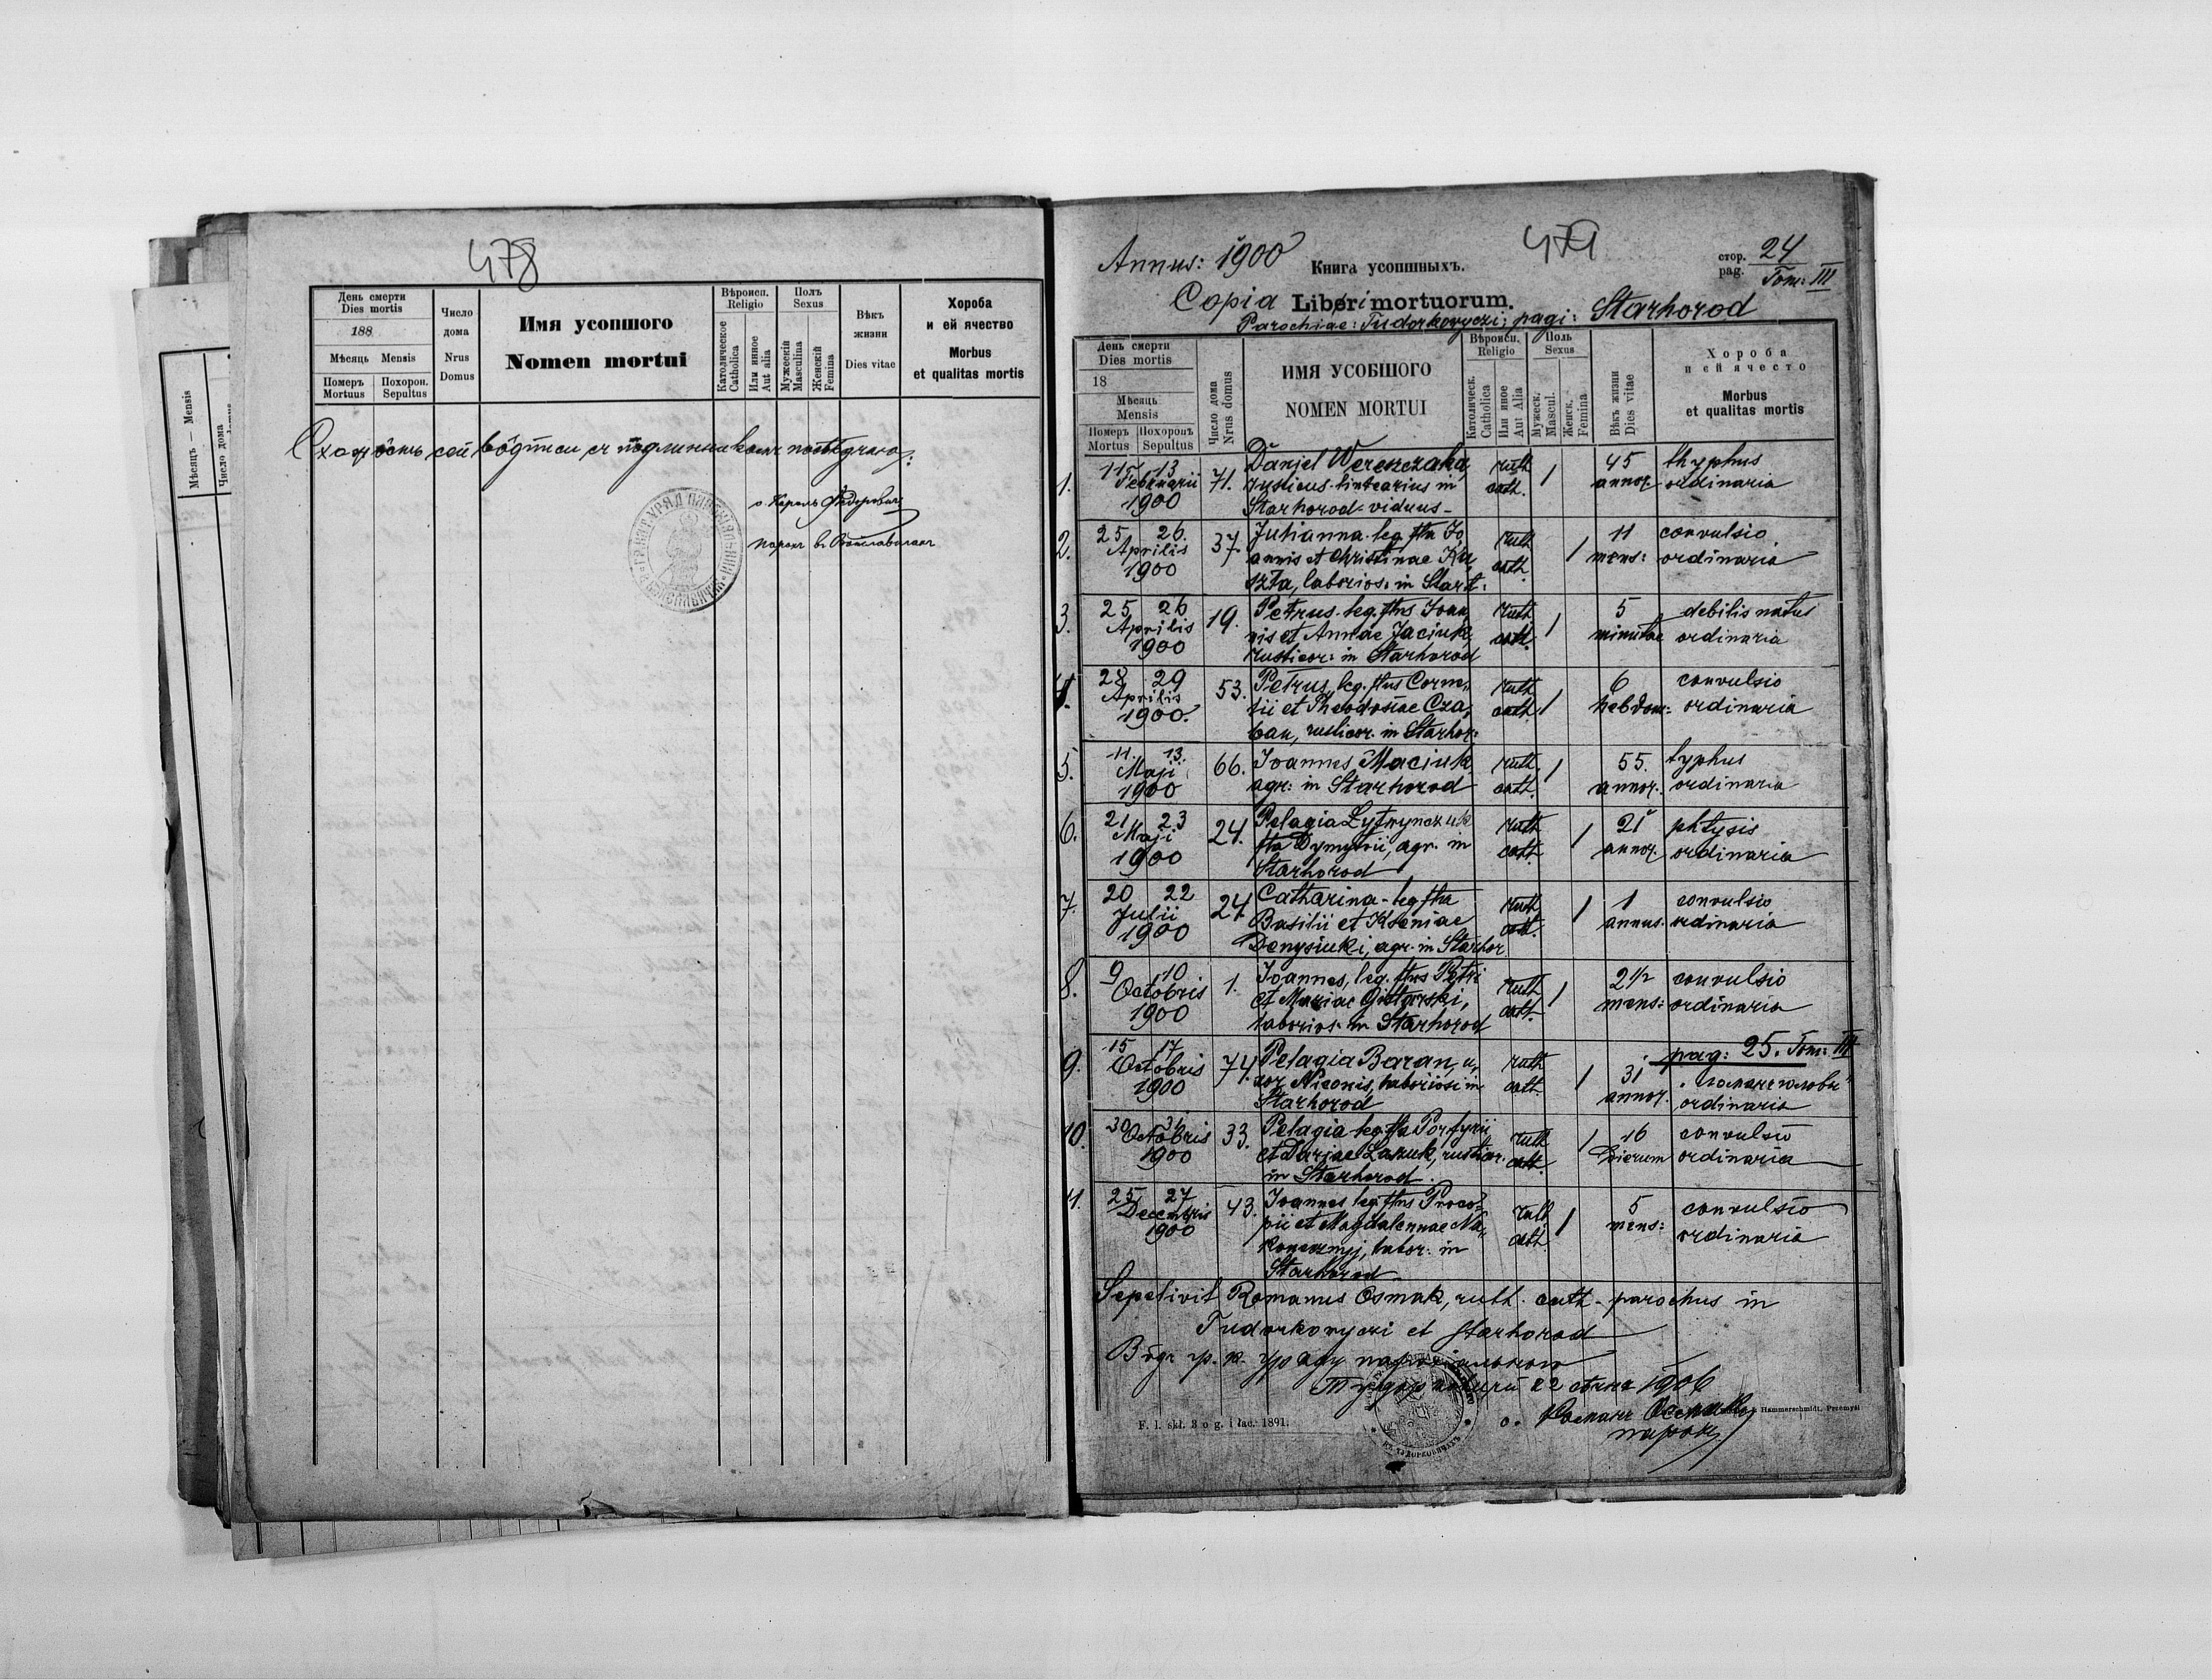 478
День смерти
Dies mortis
188
Мѣсяць Mensis
Померъ
Mortuus
Похорон.
Sepultus
Число
дома
Nrus
Domus
Имя усопшого
Nomen mortui
Вѣроисп.
Religio
Католическое
Catholica
Или инное
Aut alia
Полъ
Sexus
Мужескій
Masculina
Женскій
Femina
Вѣкъ
жизни
Dies vitae
Хороба
и ей ячество
Morbus
et qualitas mortis
Мѣсяць — Mensis
Число дома
479
Annus: 1900
Книга усопшныхъ.
стор. 24
pag. Tom: III
Copia Liberi mortuorum.
Parochiae: Tudorkowyczi; pagi: Starhorod
День смерти
Dies mortis
18
Мѣсяць
Mensis
Померъ
Mortus
Похоронъ
Sepultus
Число дома
Nrus domus
ИМЯ УСОБШОГО
NOMEN MORTUI
Вѣроисп.
Religio
Католическ.
Catholica
Или иное
Aut Alia
Полъ
Sexus
Мужеск.
Mascul.
Женск.
Femina
Вѣкъ жизни
Dies vitae
Хороба
и ей ячесто
Morbus
et qualitas mortis
1. 11 13 Februarii 1900 71. Daniel Wereszczaka,
rusticus in
Starhorod viduus
ruth. cath. 1 45 annor. thyphus
ordinaria
2. 25 26. Aprilis 1900 37. Julianna leg. fta Jo,
annis et Christinae Ku,
szta, laborios: in Starh:
ruth cath. 1 11 mens: convulsio
ordinaria
3. 25 26 Aprilis 1900 19. Petrus leg. ftus Joan,
nis et Annae Jaciuk,
rusticor: in Starhorod
ruth. cath. 1 5 minutae debilis natus
ordinaria
4. 28 29 Aprilis 1900. 53. Petrus, leg. ftus Corne,
lii et Theodosiae Cza,
ban, rusticor. in Starhor:
ruth cath. 1 6 hebdom: convulsio
ordinaria
5. 11. 13. Maji 1900 66. Joannes Maciuk
agr: in Starhorod
ruth. cath. 1 55. annor. typhus
ordinaria
6. 21 23 Maji 1900 24. Pelagia Lytwynczuk
fta Dymytrii, agr. in
Starhorod
ruth cath. 1 21 annor. phtysis
ordinaria
7. 20 22 Julii 1900 24. Catharina leg fta
Basilii et Kseniae
Denysiuki, agr. in Starhor
ruth cath. 1 1 annus. convulsio
ordinaria
8. 9 10 Octobris 1900 1. Joannes, leg. ftus Petri
et Mariae
laborios. in Starhorod
ruth cath. 1 2 1/2 mens: convulsio
ordinaria
pag: 25. Tom: III
9. 15 17 Octobris 1900 74. Pelagia Baran, u,
xor Niconis, laboriosi in
Starhorod
ruth cath. 1 31 annor.
ordinaria
10. 30 31 Octobris 1900 33. Pelagia leg. fta Porfyrii
et Dariae Lazuk, rusticor.
in Starhorod.
ruth cath. 1 16 dierum convulsio
ordinaria
11. 25 27 Decembris 1900 43. Joannes leg. ftus Proco,
pii et Magdalennae Na,
konecznyj, labor: in
Starhorod
ruth cath. 1 5 mens: convulsio
ordinaria
Sepelivit Romanus Osmak, ruth. cath. parochus in
Tudorkowyczi et Starhorod
22 1906
о. Романъ
парох
F. l. skł. 3 o g. i łac. 1891.
Hammerschmidt, Przemyśl